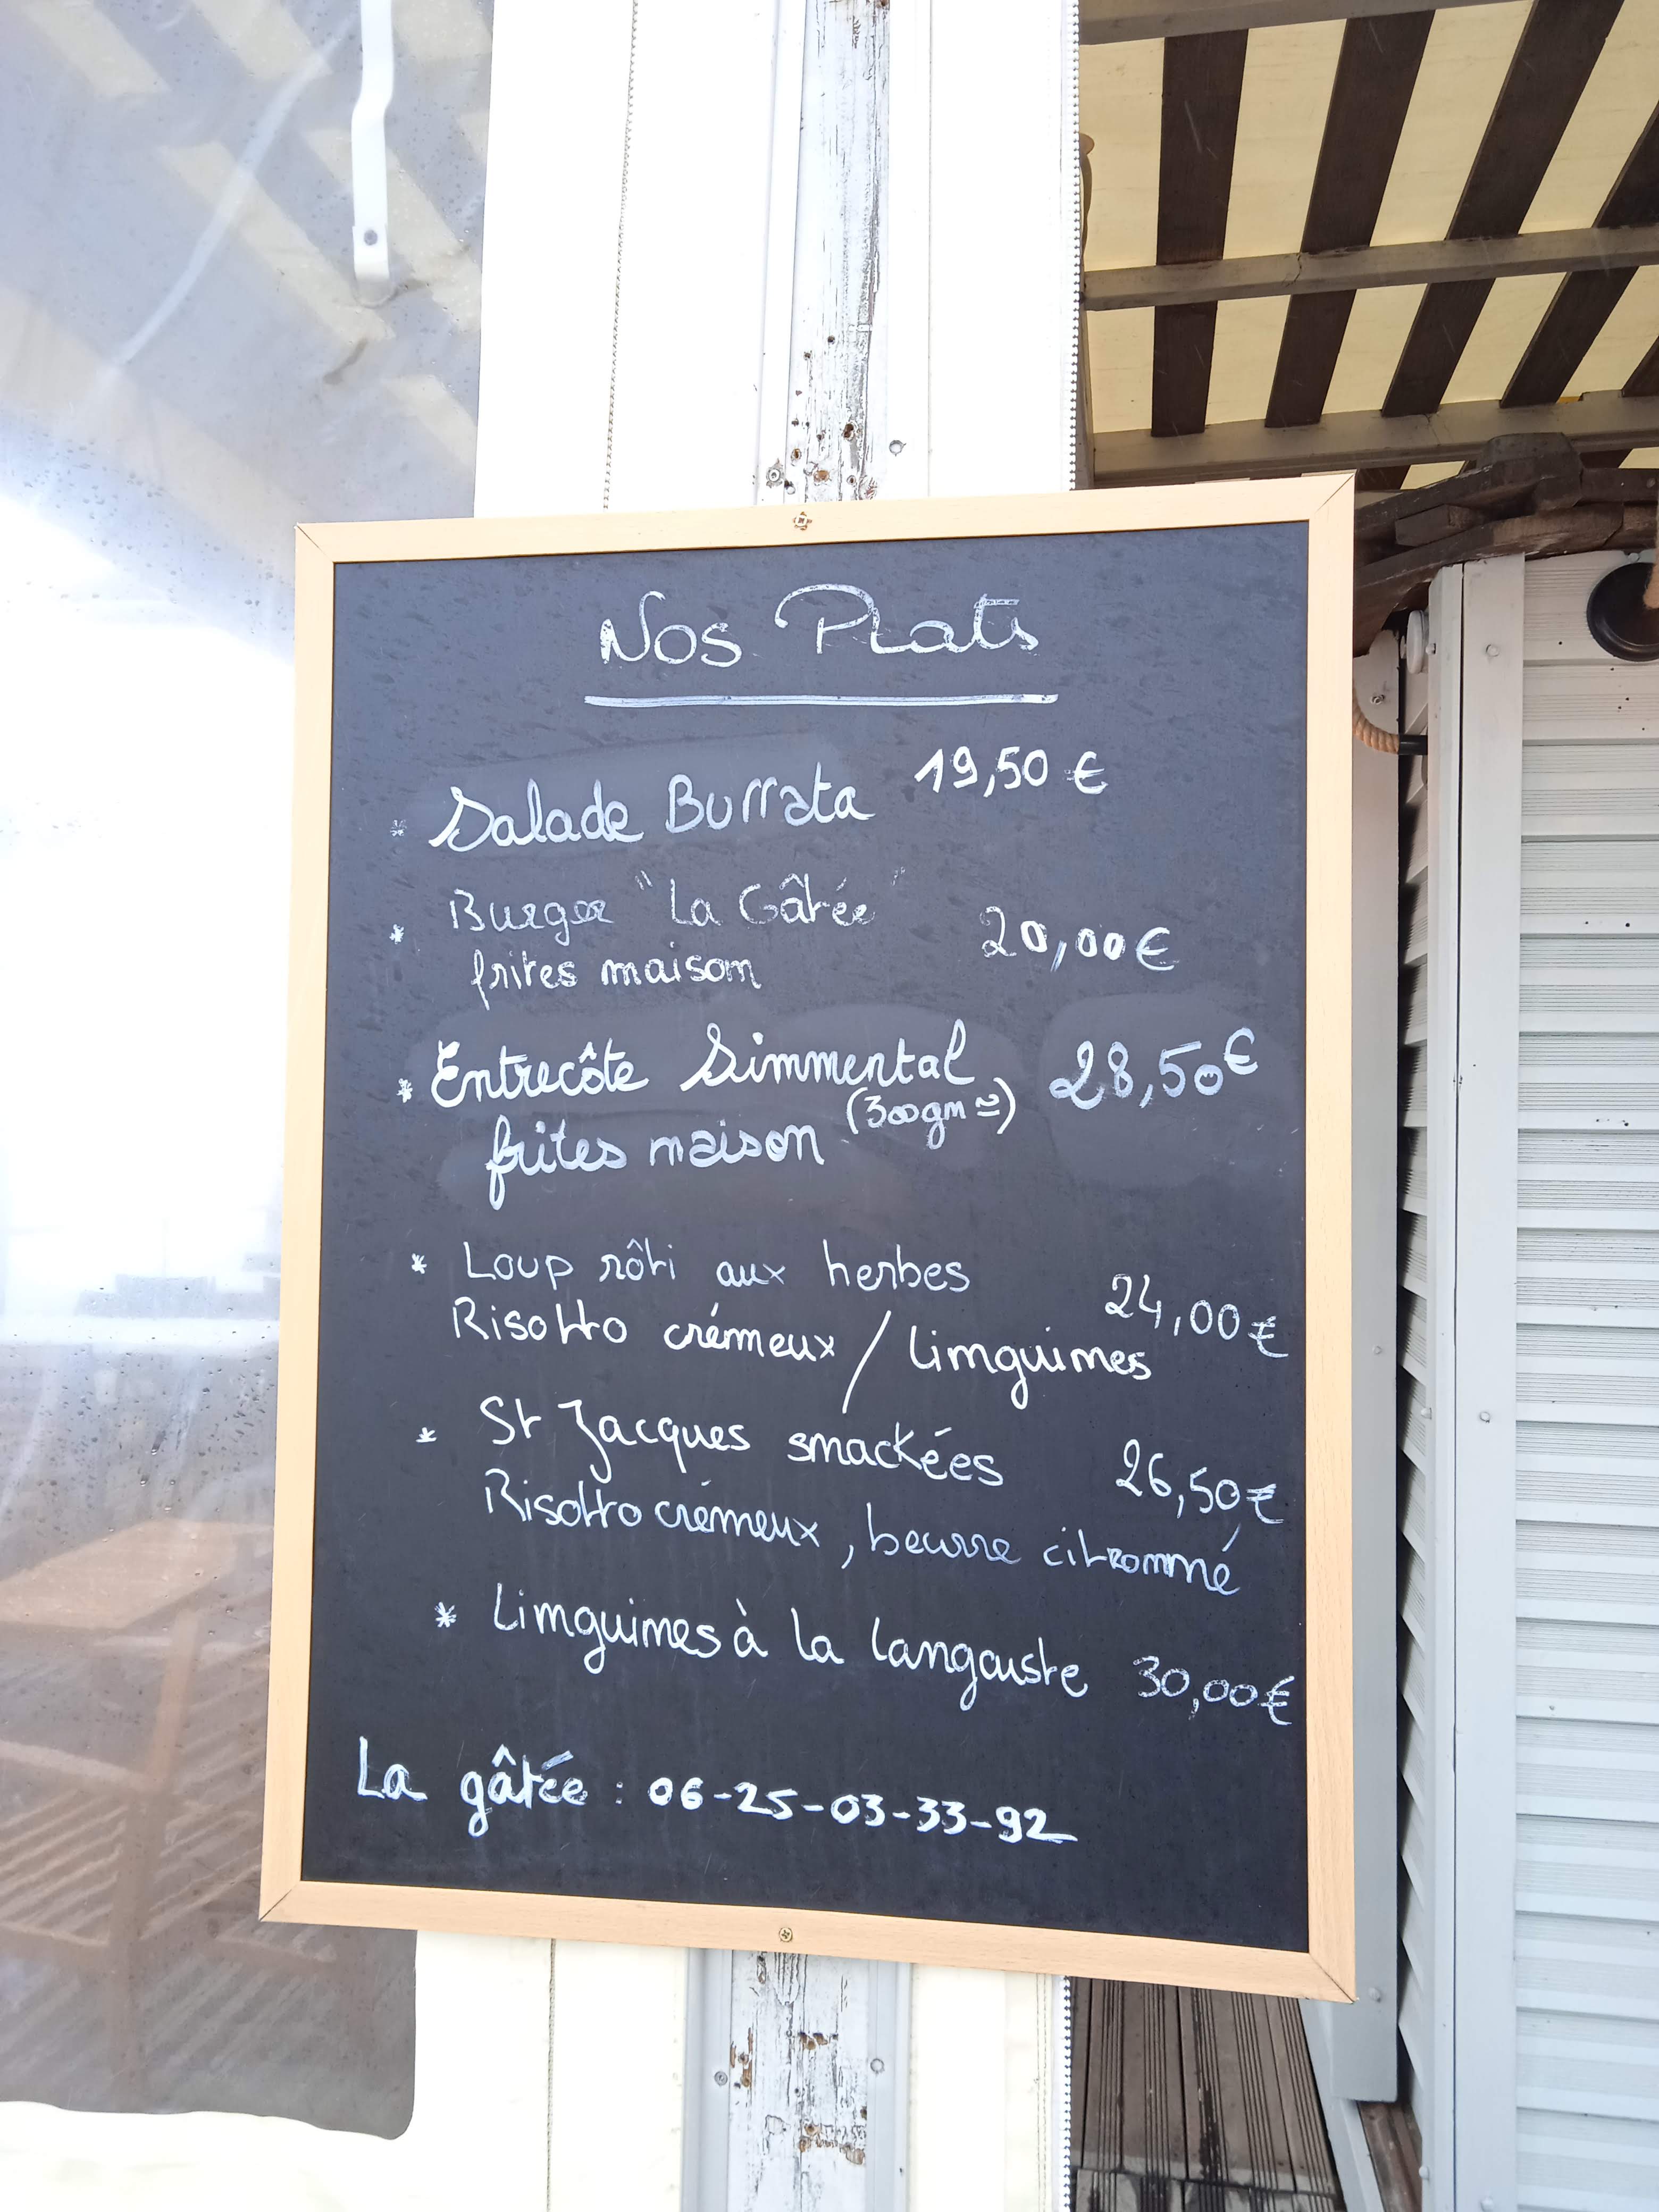 Nos Plats
* Salade Burrata 19,50 €
* Burger "La Gâtée"
frites maison 20,00 €
* Entrecôte Simmental 28,50 €
frites maison (300gm ≃)
* Loup rôti aux herbes
Risotto crémeux / linguines 24,00 €
* St Jacques smackées 26,50 €
Risotto crémeux, beurre citronné
* Linguines à la langouste 30,00 €
La gâtée : 06-25-03-33-92